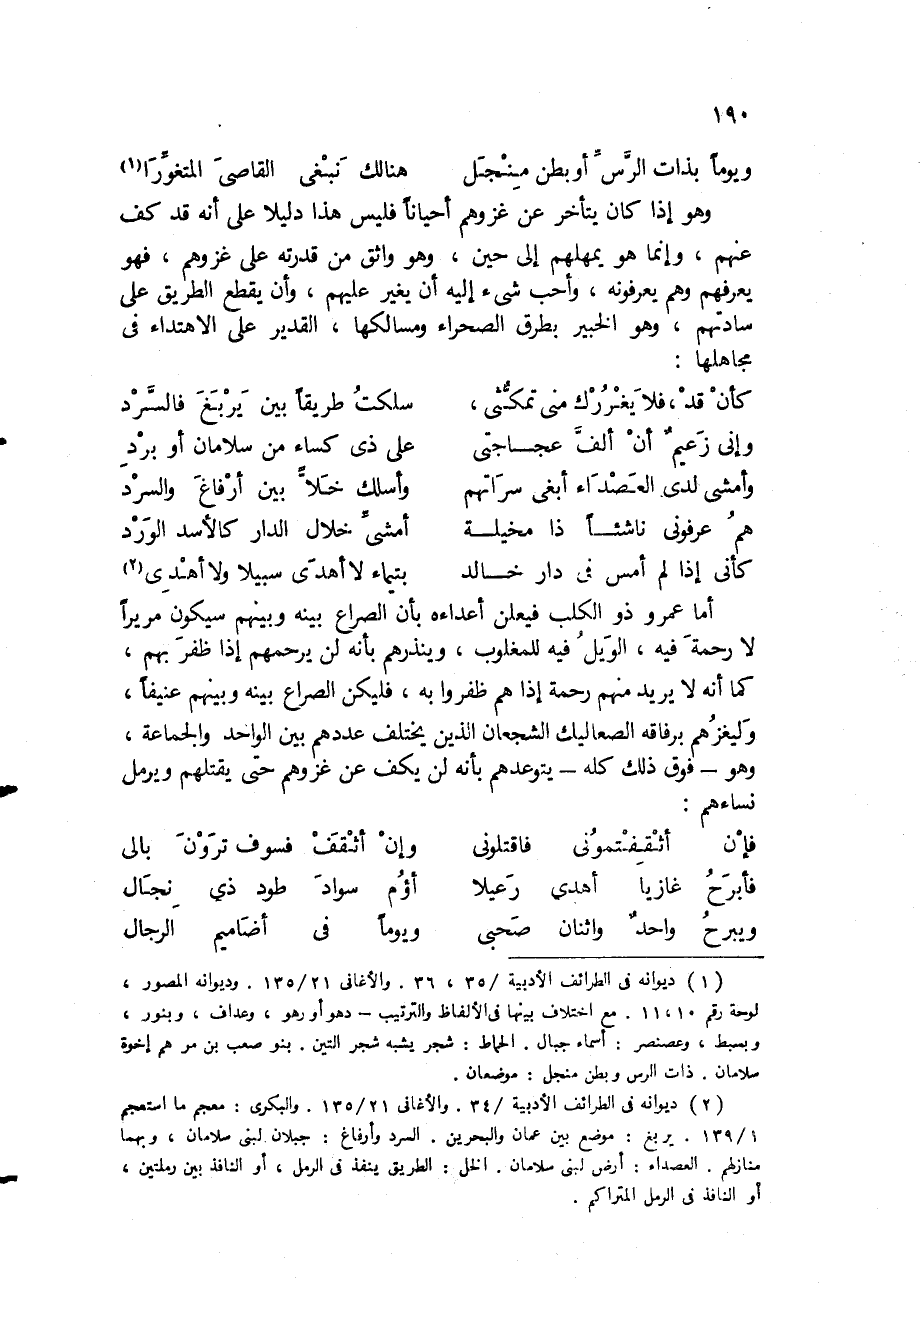 ١٩٠
ويوماً بذات الرَّسِّ أو بطن مِنْجَل هنالك نَبْغى القاصىَ المتغوِّرَا(١)
وهو إذا كان يتأخر عن غزوهم أحياناً فليس هذا دليلا على أنه قد كف
عنهم ، وإنما هو يمهلهم إلى حين ، وهو واثق من قدرته على غزوهم ، فهو
يعرفهم وهم يعرفونه ، وأحب شىء إليه أن يغير عليهم ، وأن يقطع الطريق على
سادتهم ، وهو الخبير بطرق الصحراء ومسالكها ، القدير على الاهتداء فى
مجاهلها :
كأنْ قدْ ، فلا يَغْرُرْك منى تمكُّثى ، سلكتُ طريقاً بين يَرْبَغَ فالسَّرْد
وإنى زَعيمٌ أنْ ألفَّ عجاجتى على ذى كساء من سلامان أو بردِ
وأمشى لدى العَصْدَاء أبغى سرَاتهم وأسلك خَلاًّ بين أرْفاغَ والسرْد
همُ عرفونى ناشئاً ذا مخيلة أمشىِّ خلال الدار كالأسد الوَرْد
كأنى إذا لم أمس فى دار خالد بتيماء لا أهدَى سبيلا ولا أهْدِى(٢)
أما عمرو ذو الكلب فيعلن أعداءه بأن الصراع بينه وبينهم سيكون مريراً
لا رحمةَ فيه ، الويلُ فيه للمغلوب ، وينذرهم بأنه لن يرحمهم إذا ظفرَ بهم ،
كما أنه لا يريد منهم رحمة إذا هم ظفروا به ، فليكن الصراع بينه وبينهم عنيفاً ،
وَليغزُهم برفاقه الصعاليك الشجعان الذين يختلف عددهم بين الواحد والجماعة ،
وهو – فوق ذلك كله – يتوعدهم بأنه لن يكف عن غزوهم حتى يقتلهم ويرمل
نساءهم :
فإنْ أثْقِفْتمونُى فاقتلونى وإنْ أثْقَفْ فسوف تروْنَ بالى
فأبرَحُ غازيا أهدي رَعيلا أؤُم سوادَ طود ذي نِجَال
ويبرحُ واحدٌ واثنان صَحبى ويوماً فى أضَاميم الرجال
(١) ديوانه فى الطرائف الأدبية /٣٥ ، ٣٦ . والأغانى ١٣٥/٢١ . وديوانه المصور ،
لوحة رقم ١٠، ١١ . مع اختلاف بينها فى الألفاظ والترتيب – دهو أو رهو ، وعداف ، وبنور ،
وبسبط ، وعصنصر : أسماء جبال . الحماط : شجر يشبه شجر التين . بنو صعب بن مر هم إخوة
سلامان . ذات الرس وبطن منجل : موضعان .
(٢) ديوانه فى الطرائف الأدبية /٣٤ . والأغانى ١٣٥/٢١ . والبكرى : معجم ما استعجم
١٣٩/١ . يربغ : موضع بين عمان والبحرين . السرد وأرفاغ : جبلان لبنى سلامان ، وبهما
منازلهم . العصداء : أرض لبنى سلامان . الخل : الطريق ينفذ فى الرمل ، أو النافذ بين رملتين ،
أو النافذ فى الرمل المتراكم .